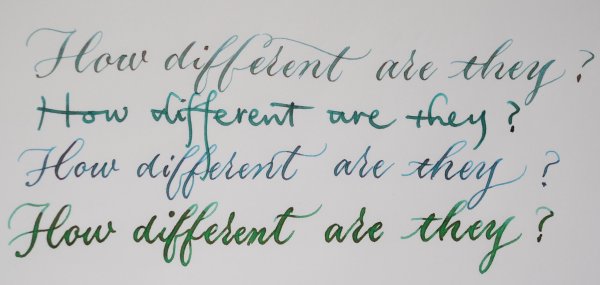 How different are they?
How different are they?
How different are they?
How different are they?